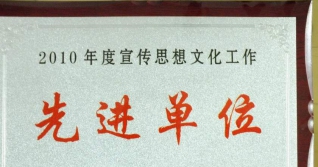 2010年度宣传思想文化工作
先进单位